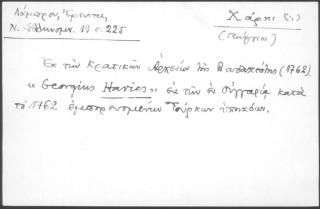 Λάμπρος, Ἔρευναι
Ν. Ἑλληνομν. 19 σ. 225
Χάρης (;)
(Γεώργιος)
Ἐκ τῶν Κρατικῶν Ἀρχείων τῆς Βουδαπέστης (1762).
« Georgius Harios » ἐκ τῶν ἐν Οὐγγαρίᾳ κατὰ
τὸ 1762 ἐμπορευομένων Τούρκων ὑπηκόων.